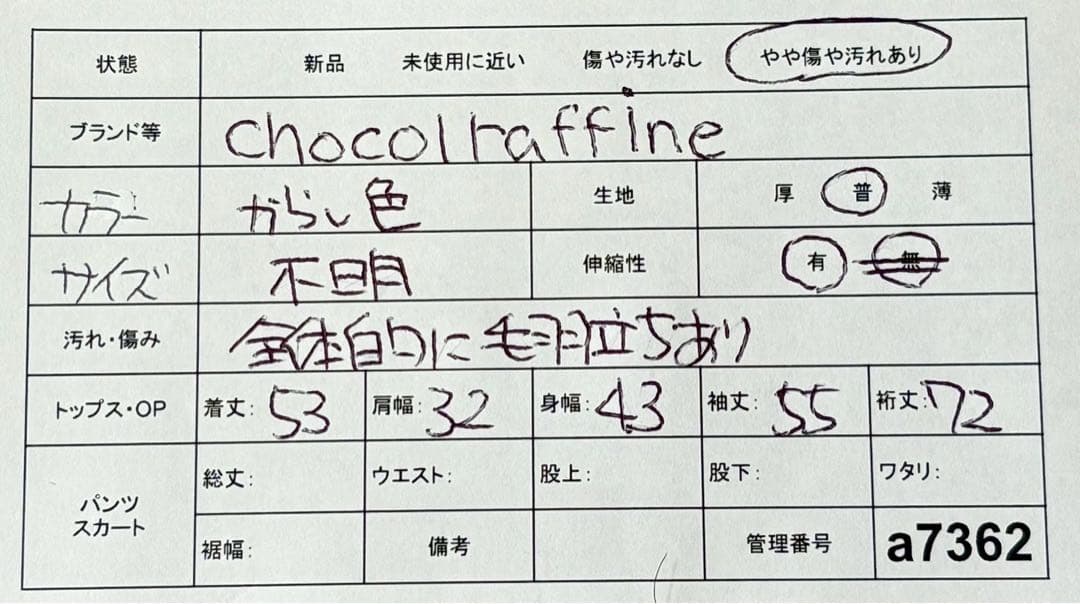 状態 新品 未使用に近い 傷や汚れなし やや傷や汚れあり
ブランド等 chocolraffine
カラー からし色 生地 厚 普 薄
サイズ 不明 伸縮性 有 無
汚れ・傷み 全体的に毛羽立ちあり
トップス・OP 着丈: 53 肩幅: 32 身幅: 43 袖丈: 55 裄丈: 72
パンツ
スカート
総丈: ウエスト: 股上: 股下: ワタリ:
裾幅: 備考 管理番号 a7362